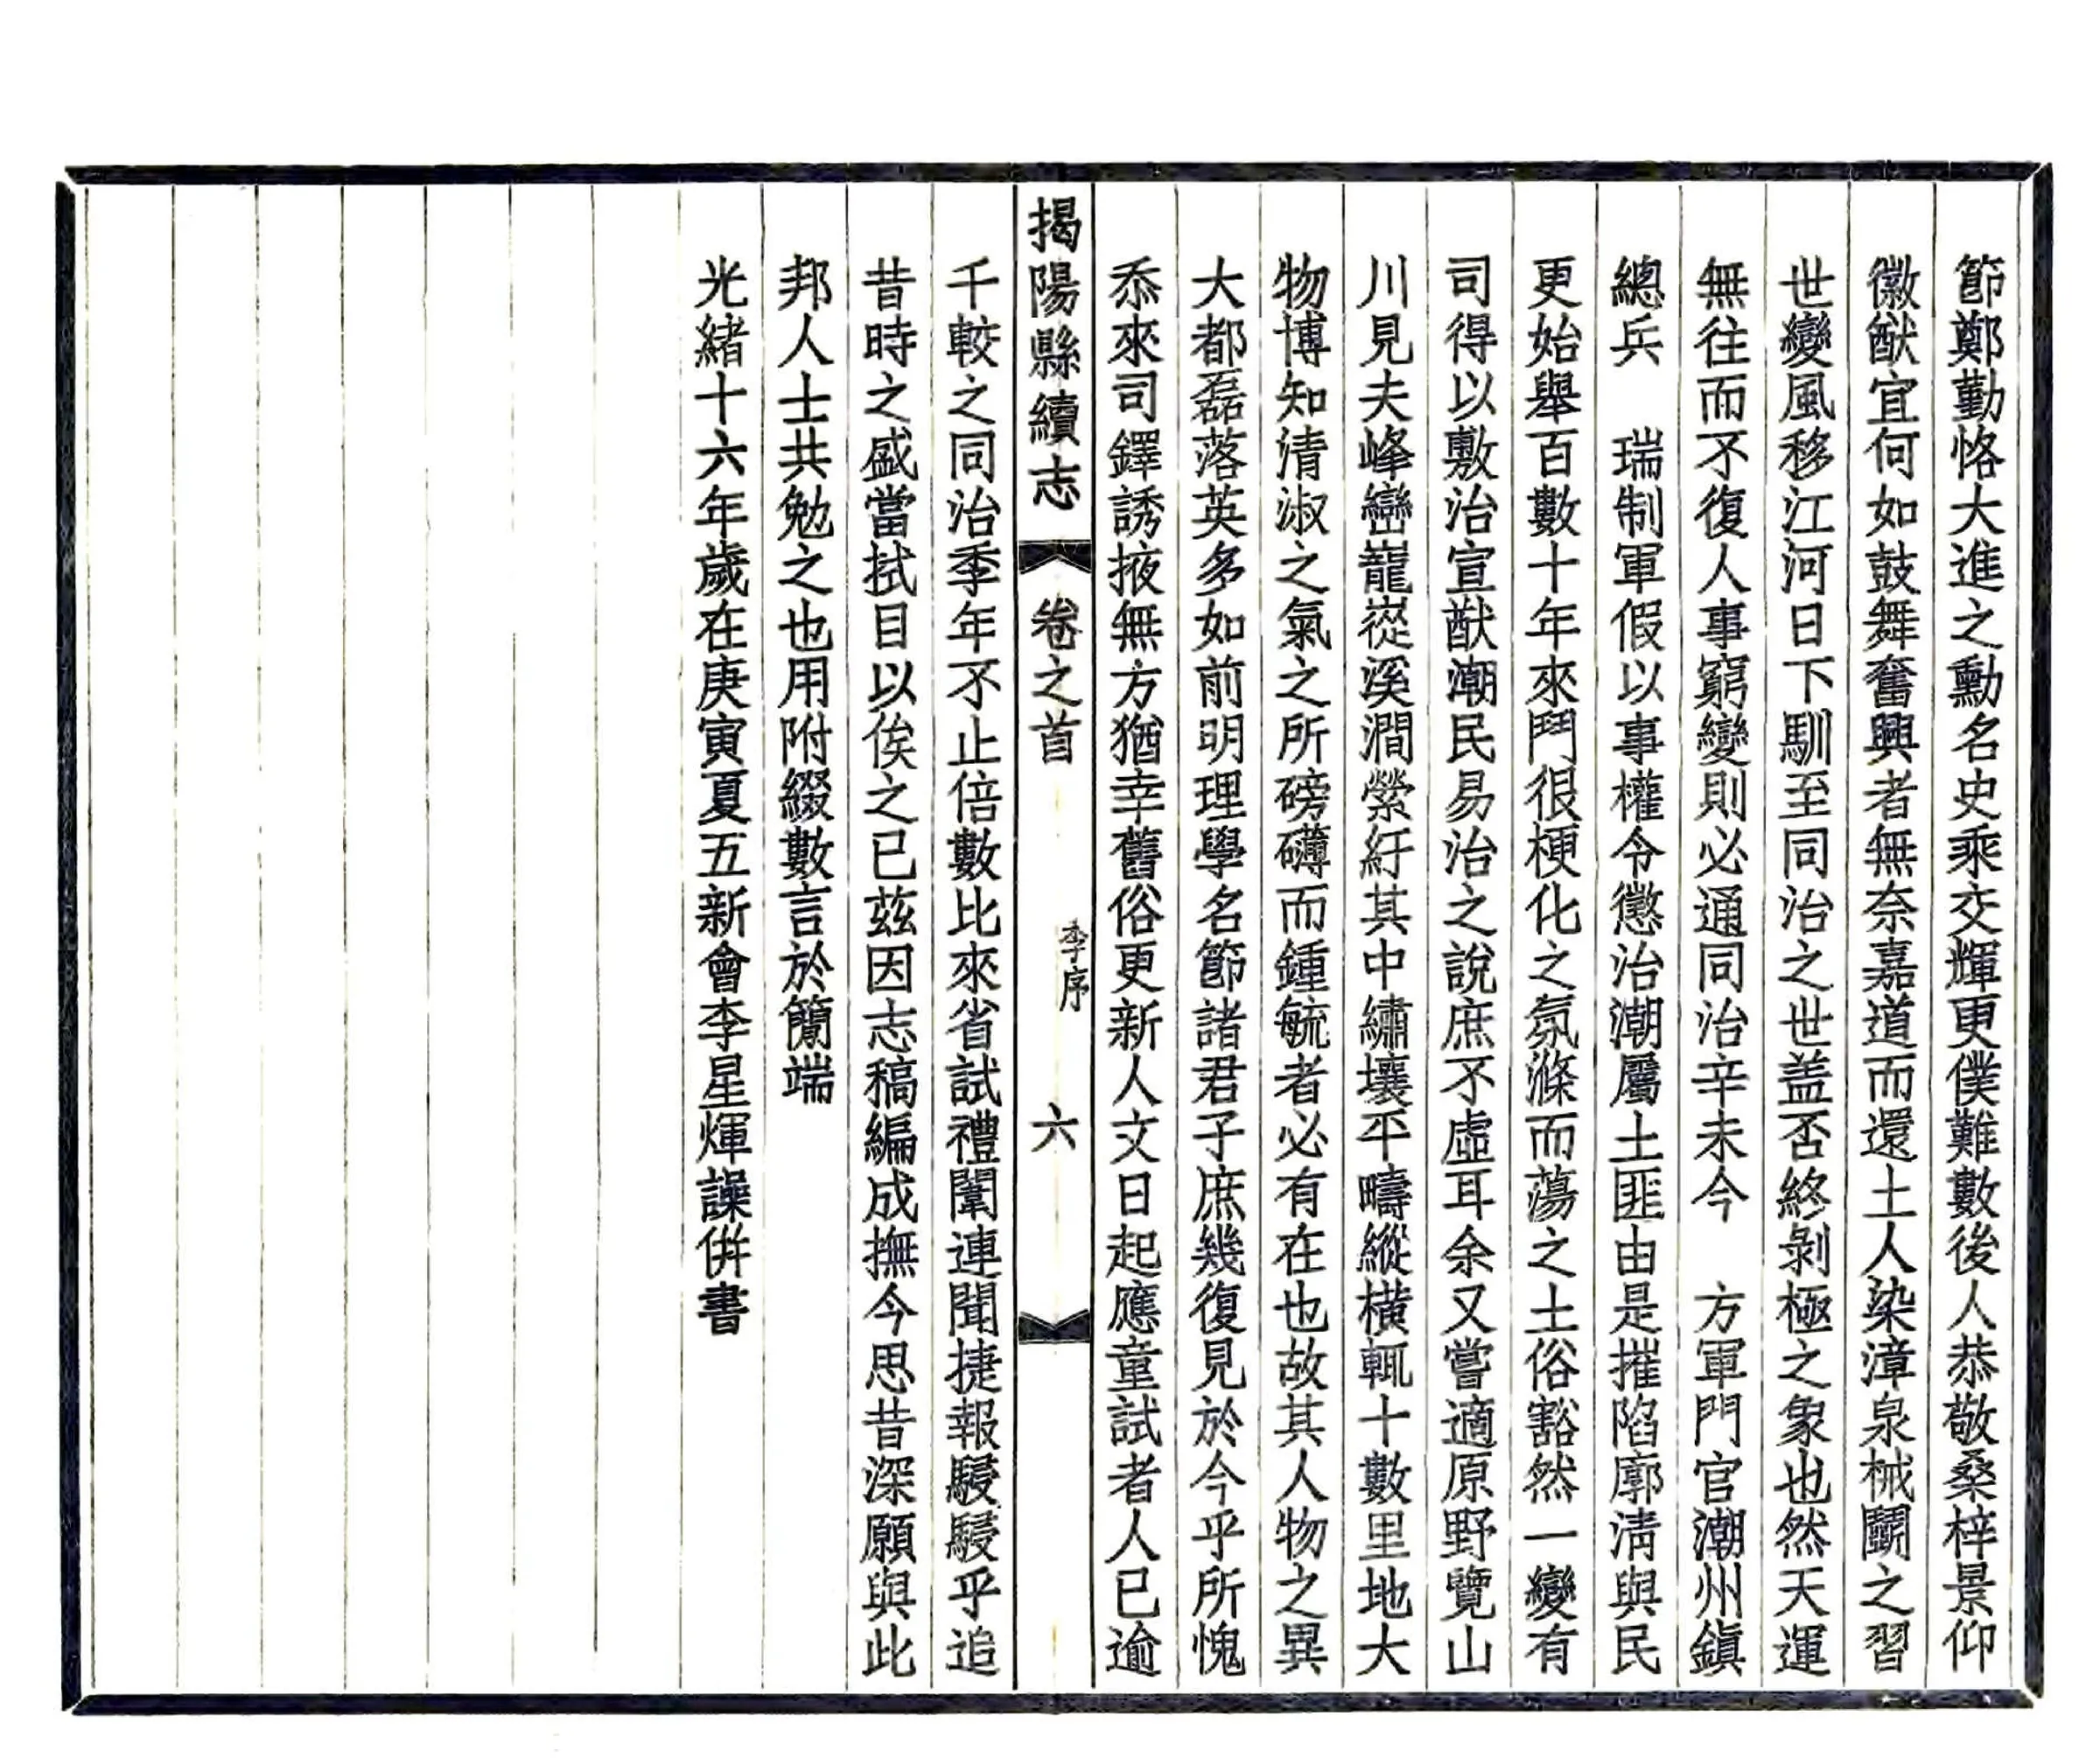 節鄭勤恪大進之勳名史乘交輝更僕難數後人恭敬桑梓景仰
徽猷宜何如鼓舞奮興者無奈嘉道而還土人染漳泉械鬬之習
世變風移江河日下馴至同治之世盖否終剝極之象也然天運
無往而不復人事窮變則必通同治辛未今　方軍門官潮州鎭
總兵　瑞制軍假以事權令懲治潮屬土匪由是摧陷廓淸與民
更始舉百數十年來鬥很梗化之氛滌而蕩之土俗豁然一變有
司得以敷治宣猷潮民易治之說庶不虛耳余又嘗適原野覽山
川見夫峰巒巃嵸溪澗縈紆其中繡壤平疇縱橫輒十數里地大
物博知清淑之氣之所磅礴而鍾毓者必有在也故其人物之異
大都磊落英多如前明理學名節諸君子庶幾復見於今乎所愧
忝來司鐸誘掖無方猶幸舊俗更新人文日起應童試者人已逾
揭陽縣續志　卷之首　李序　六
千較之同治季年不止倍數比來省試禮闈連聞捷報駸駸乎追
昔時之盛當拭目以俟之已茲因志稿編成撫今思昔深願與此
邦人士共勉之也用附綴數言於簡端
光緒十六年歲在庚寅夏五新會李星煇譔倂書